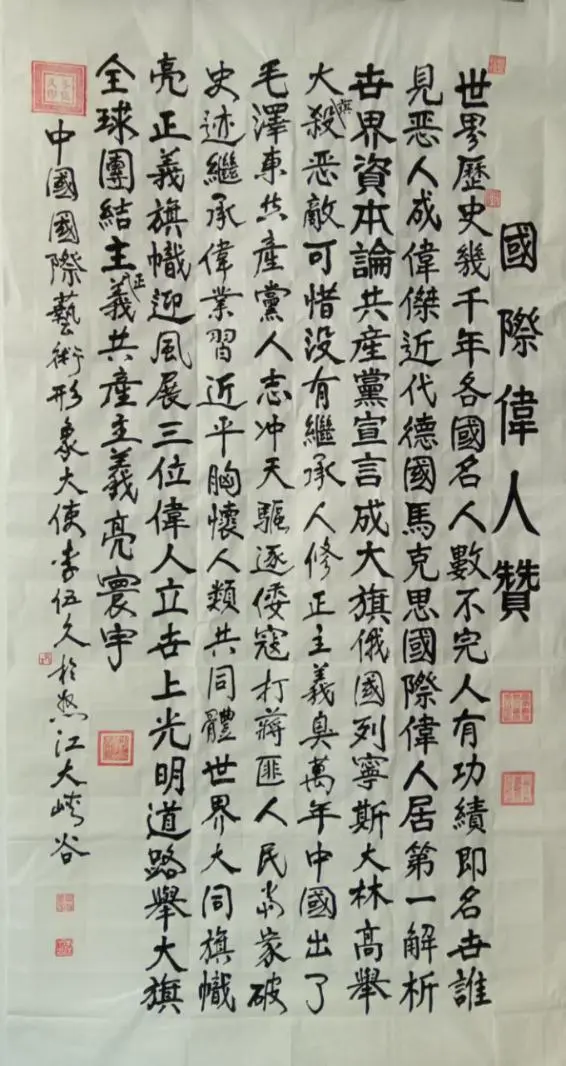 國際偉人贊
世界歷史幾千年各國名人數不完人有功績即名世誰
見恶人成偉傑近代德國馬克思國際偉人居第一解析
世界資本論共産黨宣言成大旗俄國列寧斯大林高舉
大殺恶敵可惜没有繼承人修正主義臭萬年中國出了
毛澤東共産黨人志冲天驅逐倭寇打蔣匪人民當家破
史迹繼承偉業習近平胸懷人類共同體世界大同旗幟
亮正義旗幟迎風展三位偉人立世上光明道路舉大旗
全球團結主義正共産主義亮寰宇
中國國際藝術形象大使李伍久於怒江大峽谷